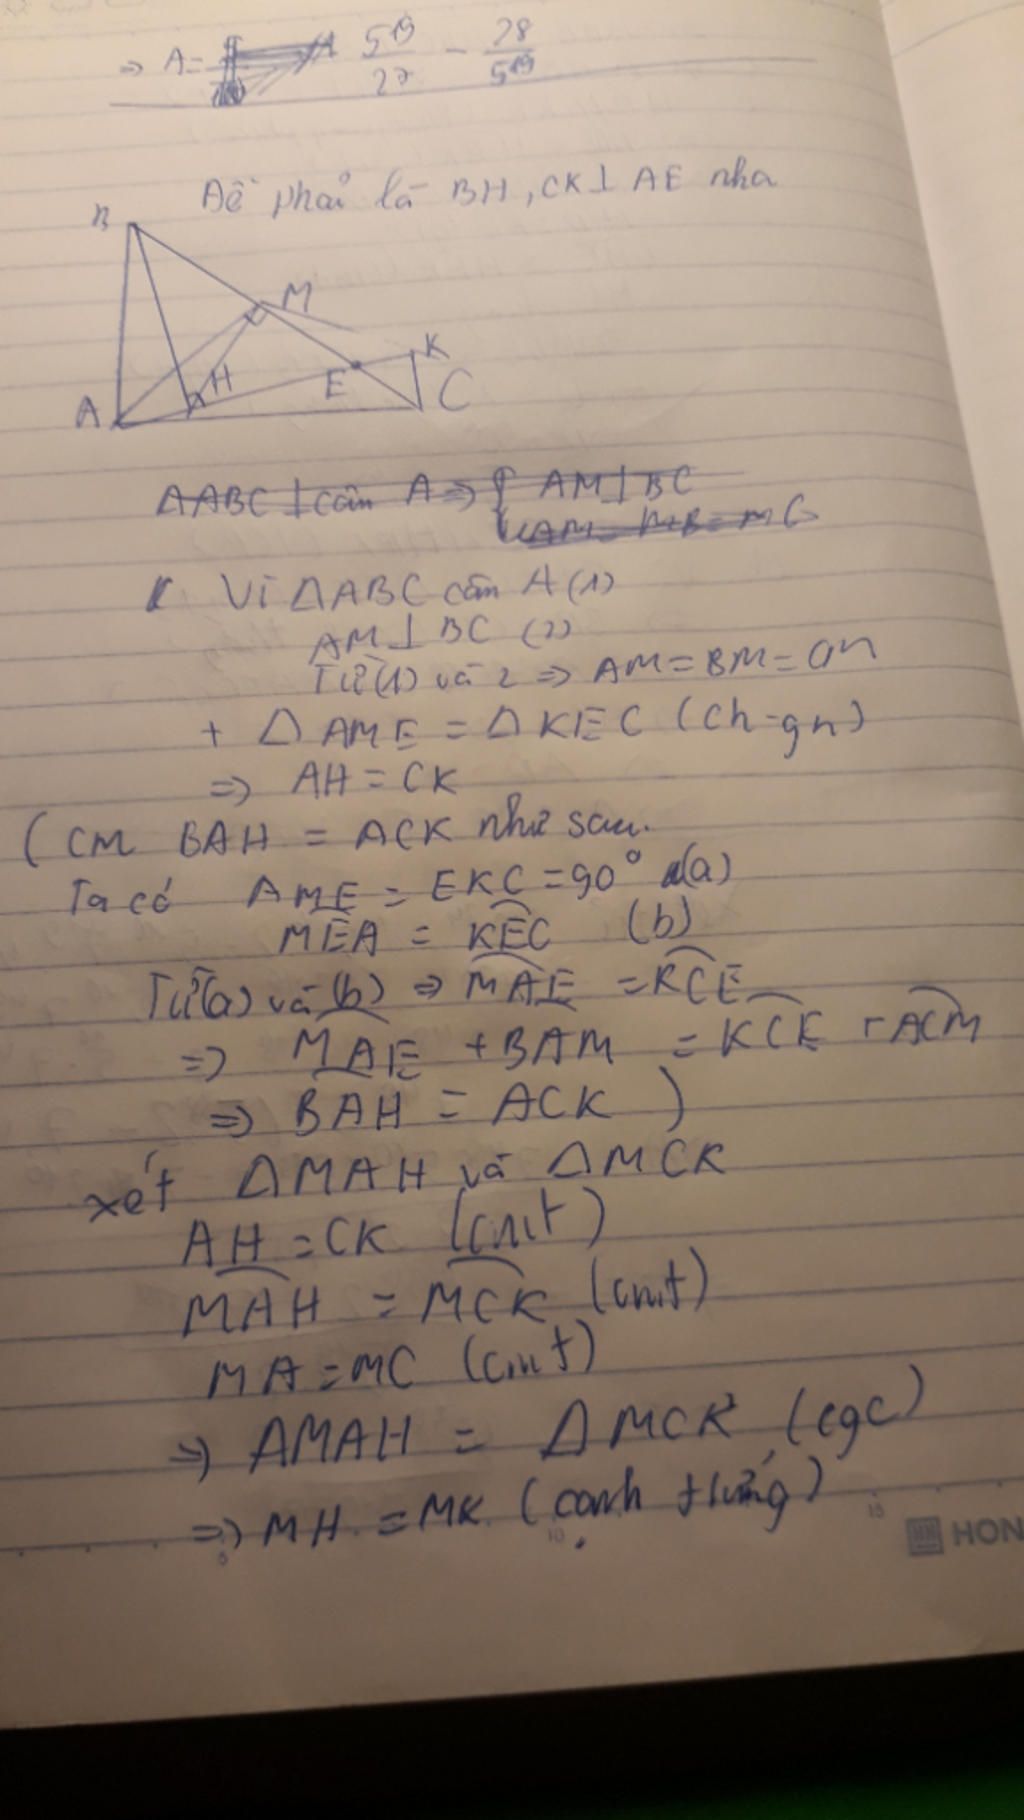 => A = 5^19/27 - 28/5^19
Đề phải là BH, CK ⊥ AE nha
B
M
K
H
E
A
C
ΔABC ⊥ cân A => { AM ⊥ BC
AM = MB = MC
Vì ΔABC cân A (1)
AM ⊥ BC (2)
Từ (1) và 2 => AM = BM = CM
+ Δ AME = Δ KEC (ch-gn)
=> AH = CK
(CM BAH = ACK như sau.
Ta có AME = EKC = 90° (a)
MEA = KEC (b)
Từ (a) và (b) => MAE = KCE
=> MAE + BAM = KCE + ACM
=> BAH = ACK )
xét ΔMAH và ΔMCK
AH = CK (cmt)
MAH = MCK (cmt)
MA = MC (cmt)
=> ΔMAH = ΔMCK (cgc)
=> MH = MK (cạnh tứ)
5
10
15
HON